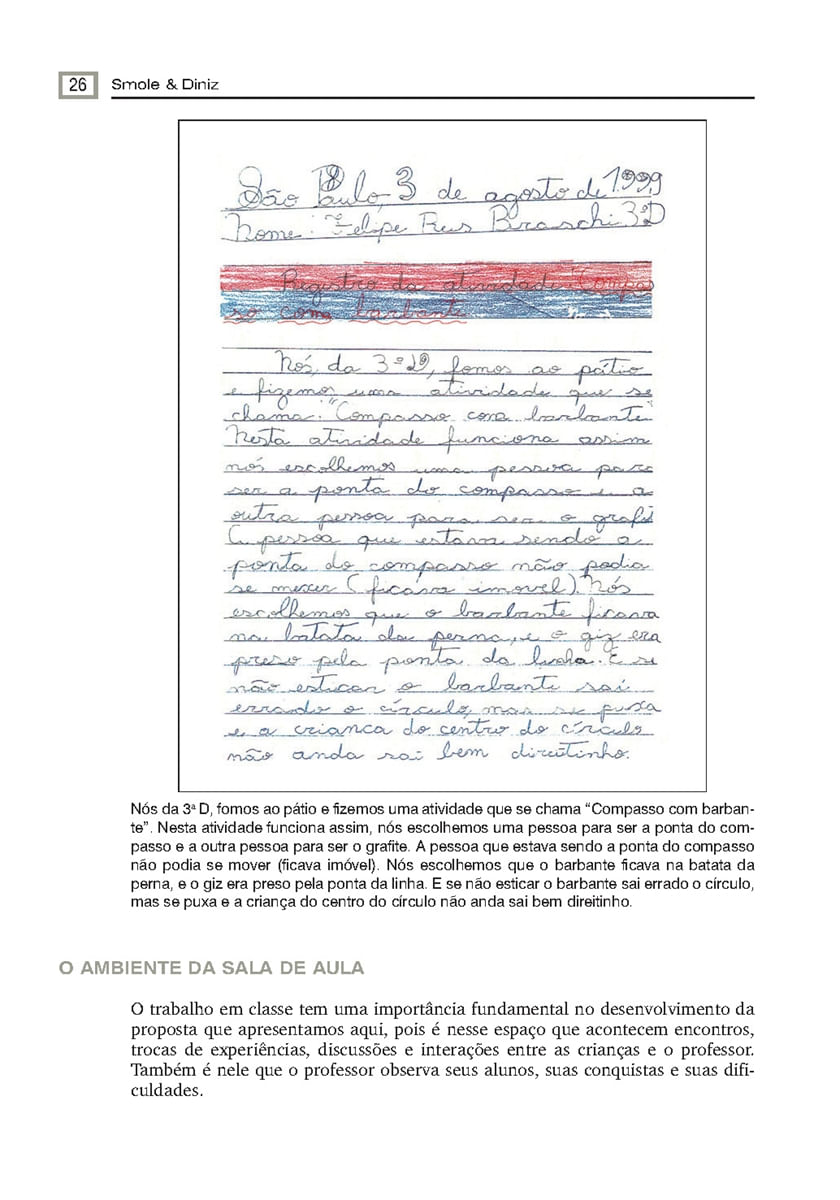 26 Smole & Diniz
São Paulo, 3 de agosto de 1.999
Nome: Felipe Reus Braschi 3ªD
Registro da atividade "Compas
so com barbante
Nós, da 3ªD, fomos ao pátio
e fizemos uma atividade que se
chama: "Compasso com barbante"
Nesta atividade funciona assim
nós escolhemos uma pessoa para
ser a ponta do compasso e a
outra pessoa para ser o grafit
pessoa que estava sendo a
ponta do compasso não podia
se mexer (ficava imovel). Nós
escolhemos que o barbante ficava
na batata da perna, e o giz era
preso pela ponta da linha. E se
não esticar o barbante sai
errado o círculo, mas se puxa
e a crianca do centro do círculo
não anda sai bem direitinho.
Nós da 3ª D, fomos ao pátio e fizemos uma atividade que se chama “Compasso com barban-
te”. Nesta atividade funciona assim, nós escolhemos uma pessoa para ser a ponta do com-
passo e a outra pessoa para ser o grafite. A pessoa que estava sendo a ponta do compasso
não podia se mover (ficava imóvel). Nós escolhemos que o barbante ficava na batata da
perna, e o giz era preso pela ponta da linha. E se não esticar o barbante sai errado o círculo,
mas se puxa e a criança do centro do círculo não anda sai bem direitinho.
O AMBIENTE DA SALA DE AULA
O trabalho em classe tem uma importância fundamental no desenvolvimento da
proposta que apresentamos aqui, pois é nesse espaço que acontecem encontros,
trocas de experiências, discussões e interações entre as crianças e o professor.
Também é nele que o professor observa seus alunos, suas conquistas e suas difi-
culdades.